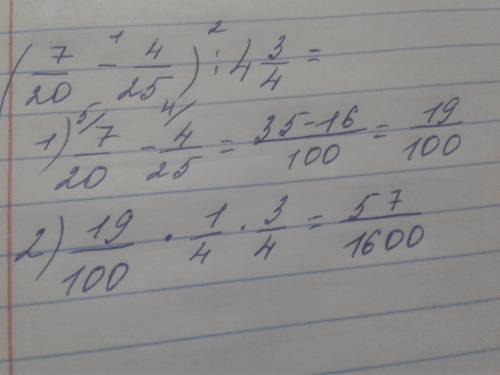 (7/20 -¹ 4/25) :² 4 3/4 =
1) ⁵/7/20 - ⁴/4/25 = 35-16/100 = 19/100
2) 19/100 · 1/4 · 3/4 = 57/1600